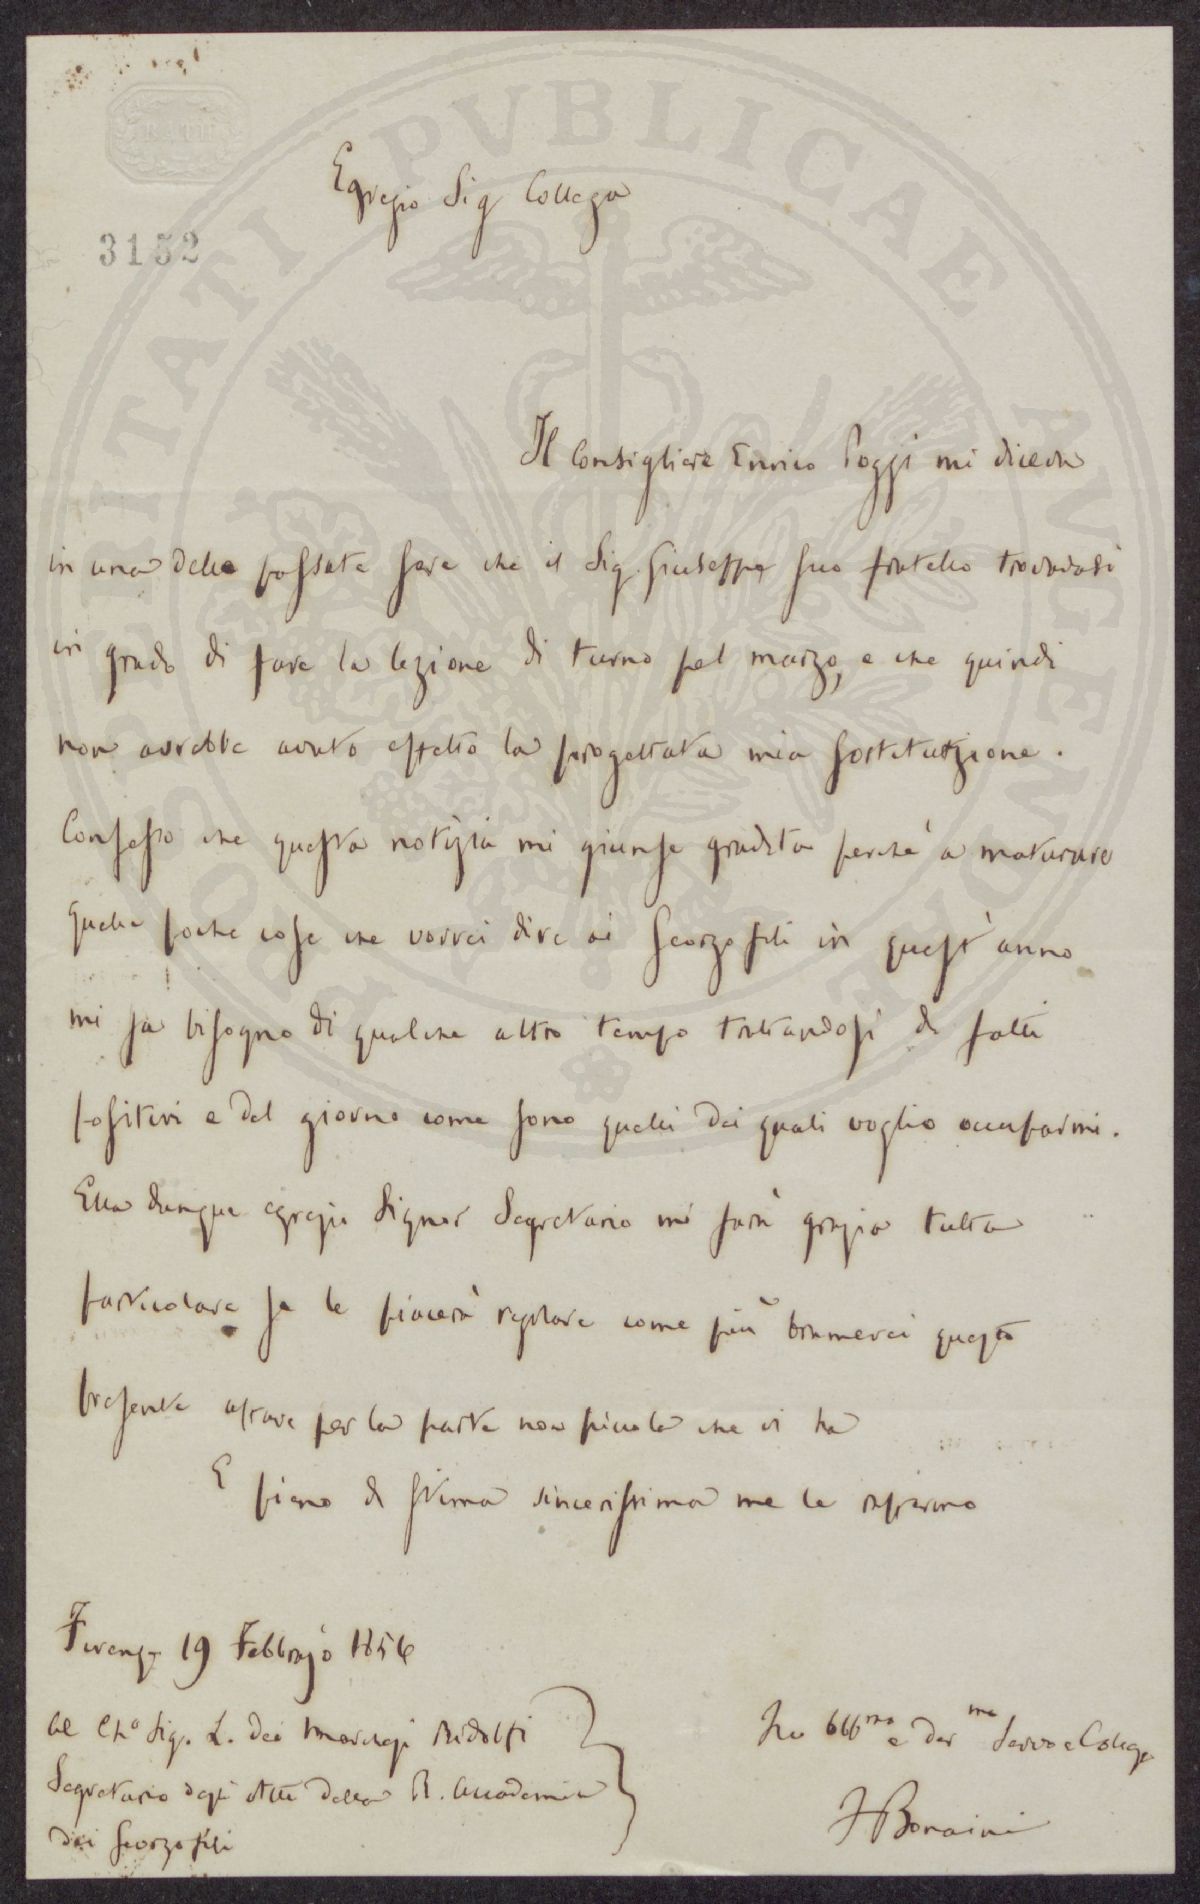 BATH
PROSPERITATI PVBLICAE AVGENDAE
Egregio Sig Collega
3152
Il Consigliere Enrico Poggi mi diceva
in una delle passate sere che il Sig. Giuseppe suo fratello trovavasi
in grado di fare la lezione di turno pel marzo, e che quindi
non avrebbe avuto effetto la progettata mia sostituzione.
Confesso che questa notizia mi giunse gradita perchè a maturare
quelle poche cose che vorrei dire ai Georgofili in quest'anno
mi fa bisogno di qualche altro tempo trattandosi di fatti
positivi e del giorno come sono quelli dei quali voglio occuparmi.
Ella dunque egregio Signor Segretario mi farà grazia tutta
particolare se le piacerà regolare come più bramerei questo
presente affare per la parte non piccola che vi ha
E pieno di stima sincerissima me le raffermo
Firenze 19 Febbrajo 1856
Al Ch.o Sig. L. dei Marchesi Ridolfi
Segretario degli Atti della R. Accademia
dei Georgofili
Suo Obb.mo e Dev.mo Servo e Collega
F Bonaini